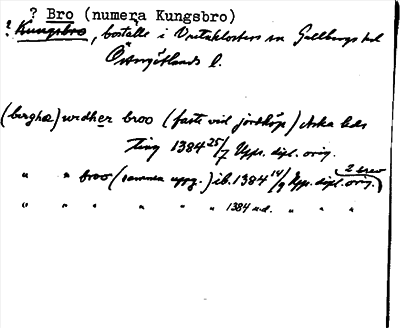 ? Bro (numera Kungsbro)
? Kungsbro, boställe i Vretaklosters sn Gullbergs hd
Östergötlands l.
(berghæ) widher broo (faste vid jordköp) Aska hds
ting 1384 25/7 Upps. dipl. orig.
" " broo (samma uppg.) ib. 1384 14/9 Upps. dipl. orig. 2 brev
" " " " " " 1384 u.d. " " "